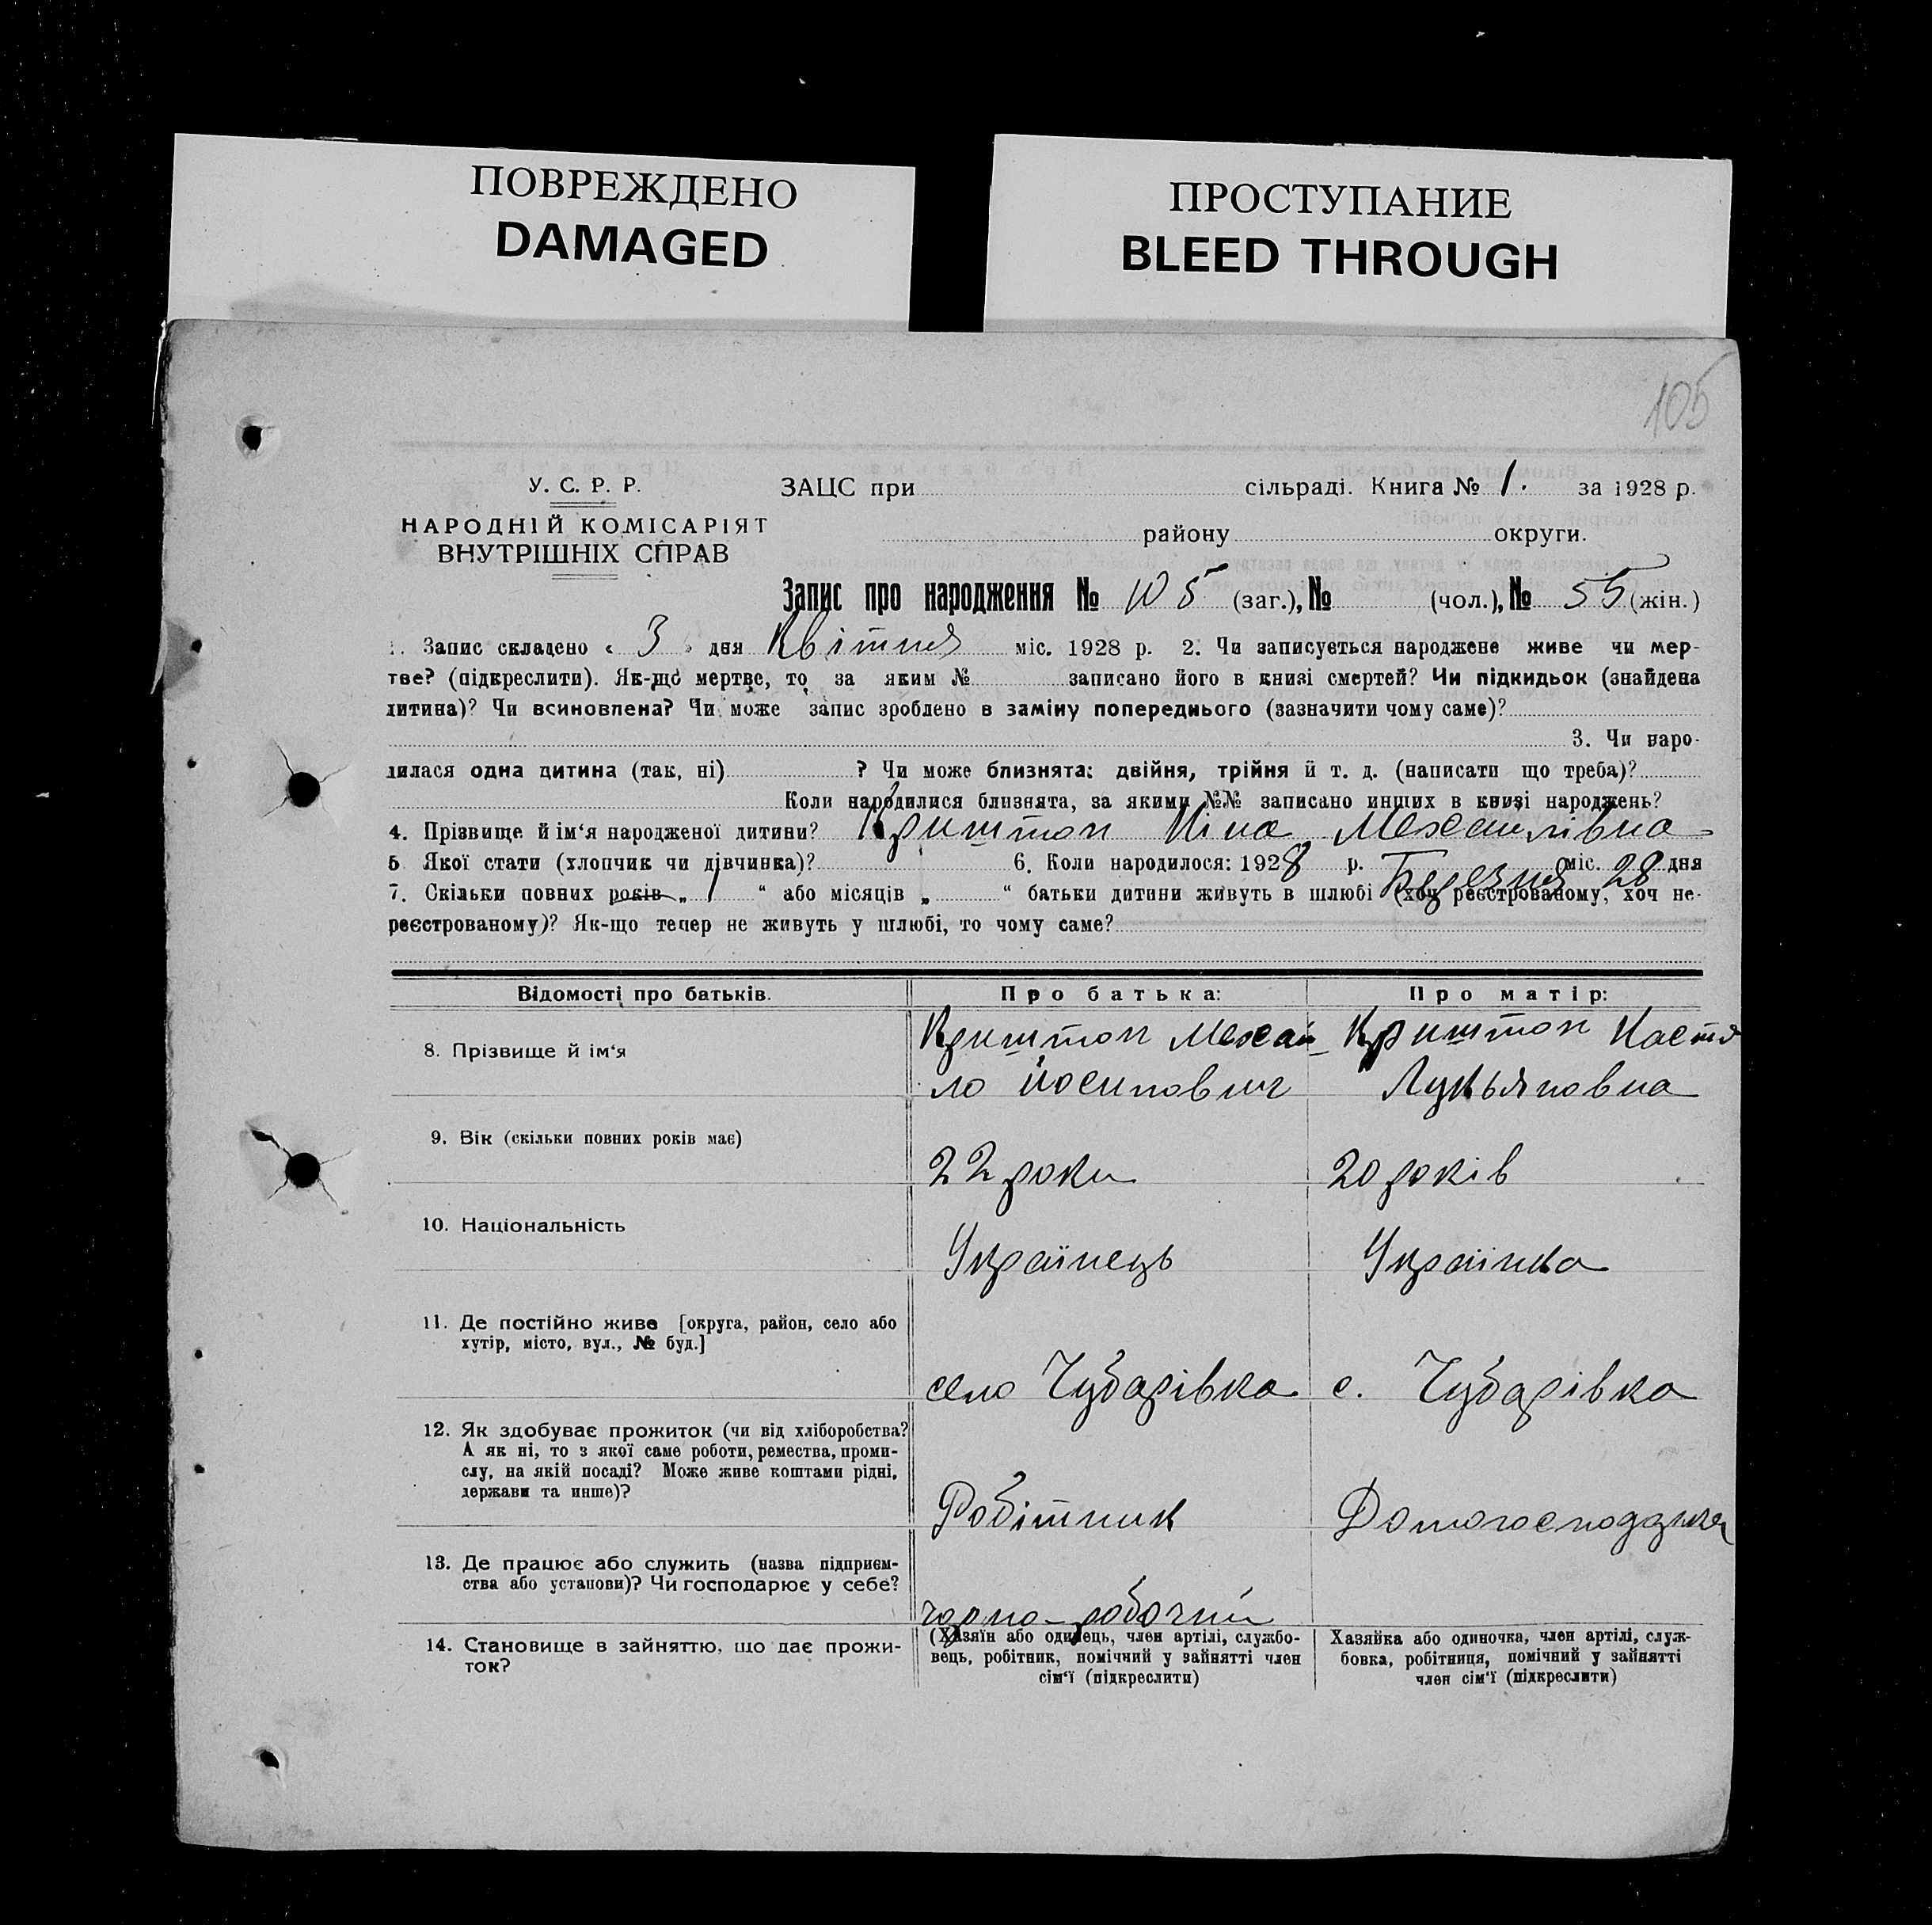 ПОВРЕЖДЕНО
DAMAGED
ПРОСТУПАНИЕ
BLEED THROUGH
105
У. С. Р. Р.
НАРОДНІЙ КОМІСАРІЯТ
ВНУТРІШНІХ СПРАВ
ЗАЦС при сільраді. Книга № 1. за 1928 р.
району округи.
Запис про народження № 105 (заг.), № (чол.), № 55 (жін.)
1. Запис складено « 3 » дня Квітня міс. 1928 р. 2. Чи записується народжене живе чи мер-
тве? (підкреслити). Як-що мертве, то за яким № записано його в книзі смертей? Чи підкидьок (знайдена
дитина)? Чи всиновлена? Чи може запис зроблено в заміну попереднього (зазначити чому саме)?
3. Чи наро-
дилася одна дитина (так, ні) ? Чи може близнята: двійня, трійня й т. д. (написати що треба)?
Коли народилися близнята, за якими №№ записано инших в книзі народжень?
4. Прізвище й ім‘я народженої дитини? Криштоп Ніна Механлівна
5 Якої стати (хлопчик чи дівчинка)? 6. Коли народилося: 1928 р. Березня міс. 28 дня
7. Скільки повних років „ 1 “ або місяців „ “ батьки дитини живуть в шлюбі (хоч реєстрованому, хоч не-
реєстрованому)? Як-що тепер не живуть у шлюбі, то чому саме?
Відомості про батьків. Про батька: Про матір:
8. Прізвище й ім‘я
Криштоп Механ- Криштоп Настя
ло Йосипович Лукьяновна
9. Вік (скільки повних років має)
22 роки 20 років
10. Національність
Українець Українка
11. Де постійно живе [округа, район, село або
хутір, місто, вул., № буд.]
село Чубарівка с. Чубарівка
12. Як здобуває прожиток (чи від хліборобства?
А як ні, то з якої саме роботи, ремества, проми-
слу, на якій посаді? Може живе коштами рідні,
держави та инше)?
Робітник Домогосподарка
13. Де працює або служить (назва підприєм-
ства або установи)? Чи господарює у себе?
чорно-робочий
14. Становище в зайняттю, що дає прожи-
ток?
(Хазяїн або одинець, член артілі, службо-
вець, робітник, помічний у зайнятті член
сім‘ї (підкреслити)
Хазяйка або одиночка, член артілі, служ-
бовка, робітниця, помічний у зайнятті
член сім‘ї (підкреслити)